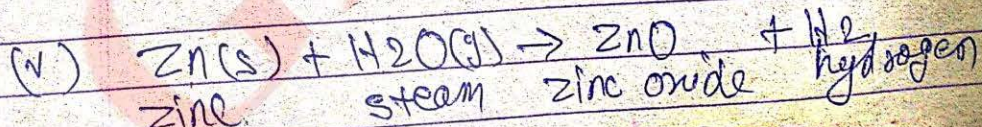 (v) Zn(s) + H2O(g) → ZnO + H2
zinc steam zinc oxide hydrogen